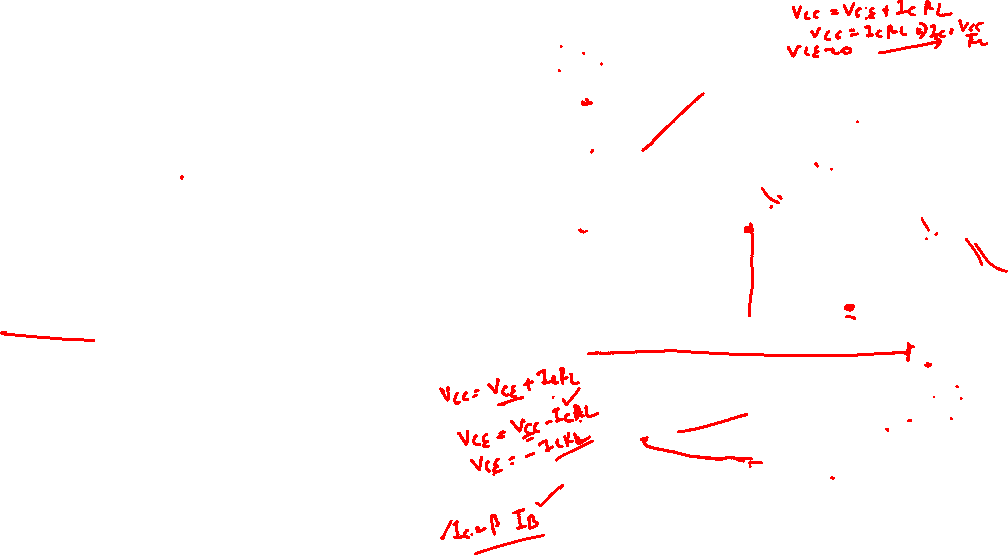 VCC = VCE + IC RL
VCC = IC RL ⇒ IC = VCC / RL
VCE = 0
VCC = VCE + IC RL
VCE = VCC - IC RL
VCE = - IC RL
IC = β IB